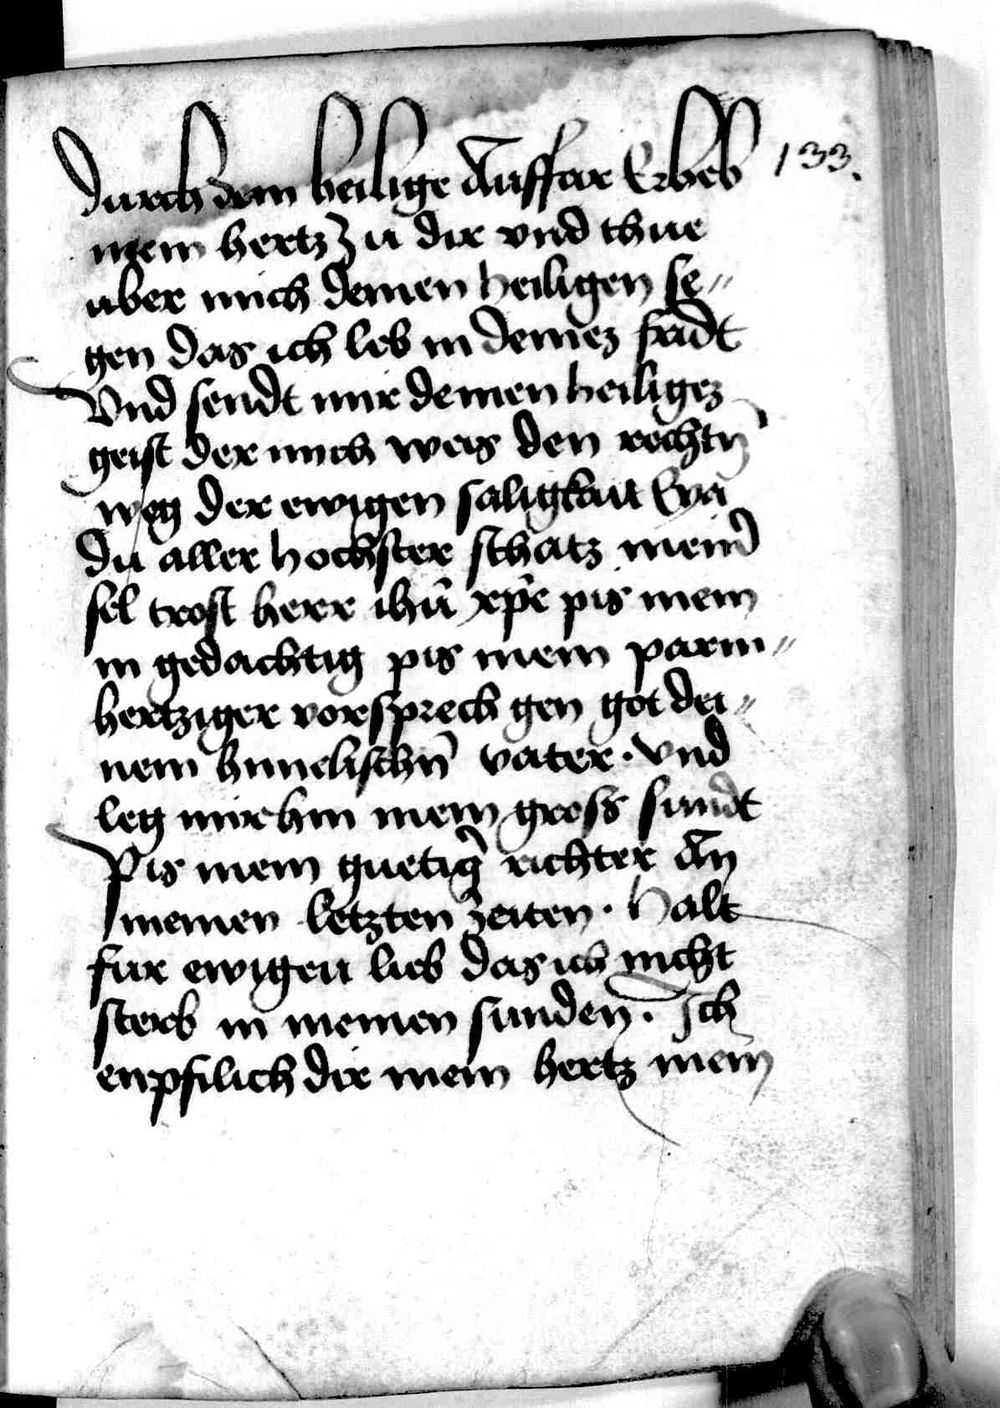 durch dein heilige Auffar Erheb 133.
mein hertz zu dir vnd thue
uber mich deinen heiligen se〃
gen das ich leb in deinez fridt
Vnd sendt mir deinen heiligez
geist der mich weis den rechtn̄
weg der ewigen saligkait Eya
du aller hochster schatz mein̄
sel trost herr ihū xp̄e pis mein
in gedachtig pis mein parm〃
hertziger vorsprech gen got dei〃
nem himelischn̄ vater · Vnd
leg mir hin mein gross sundt
Pis mein guetig̉ richter An
meinen letzten zeiten · Halt
fur ewigen lieb das ich nicht
sterb in meinen sunden · Ich
enpfilich dir mein hertz mein